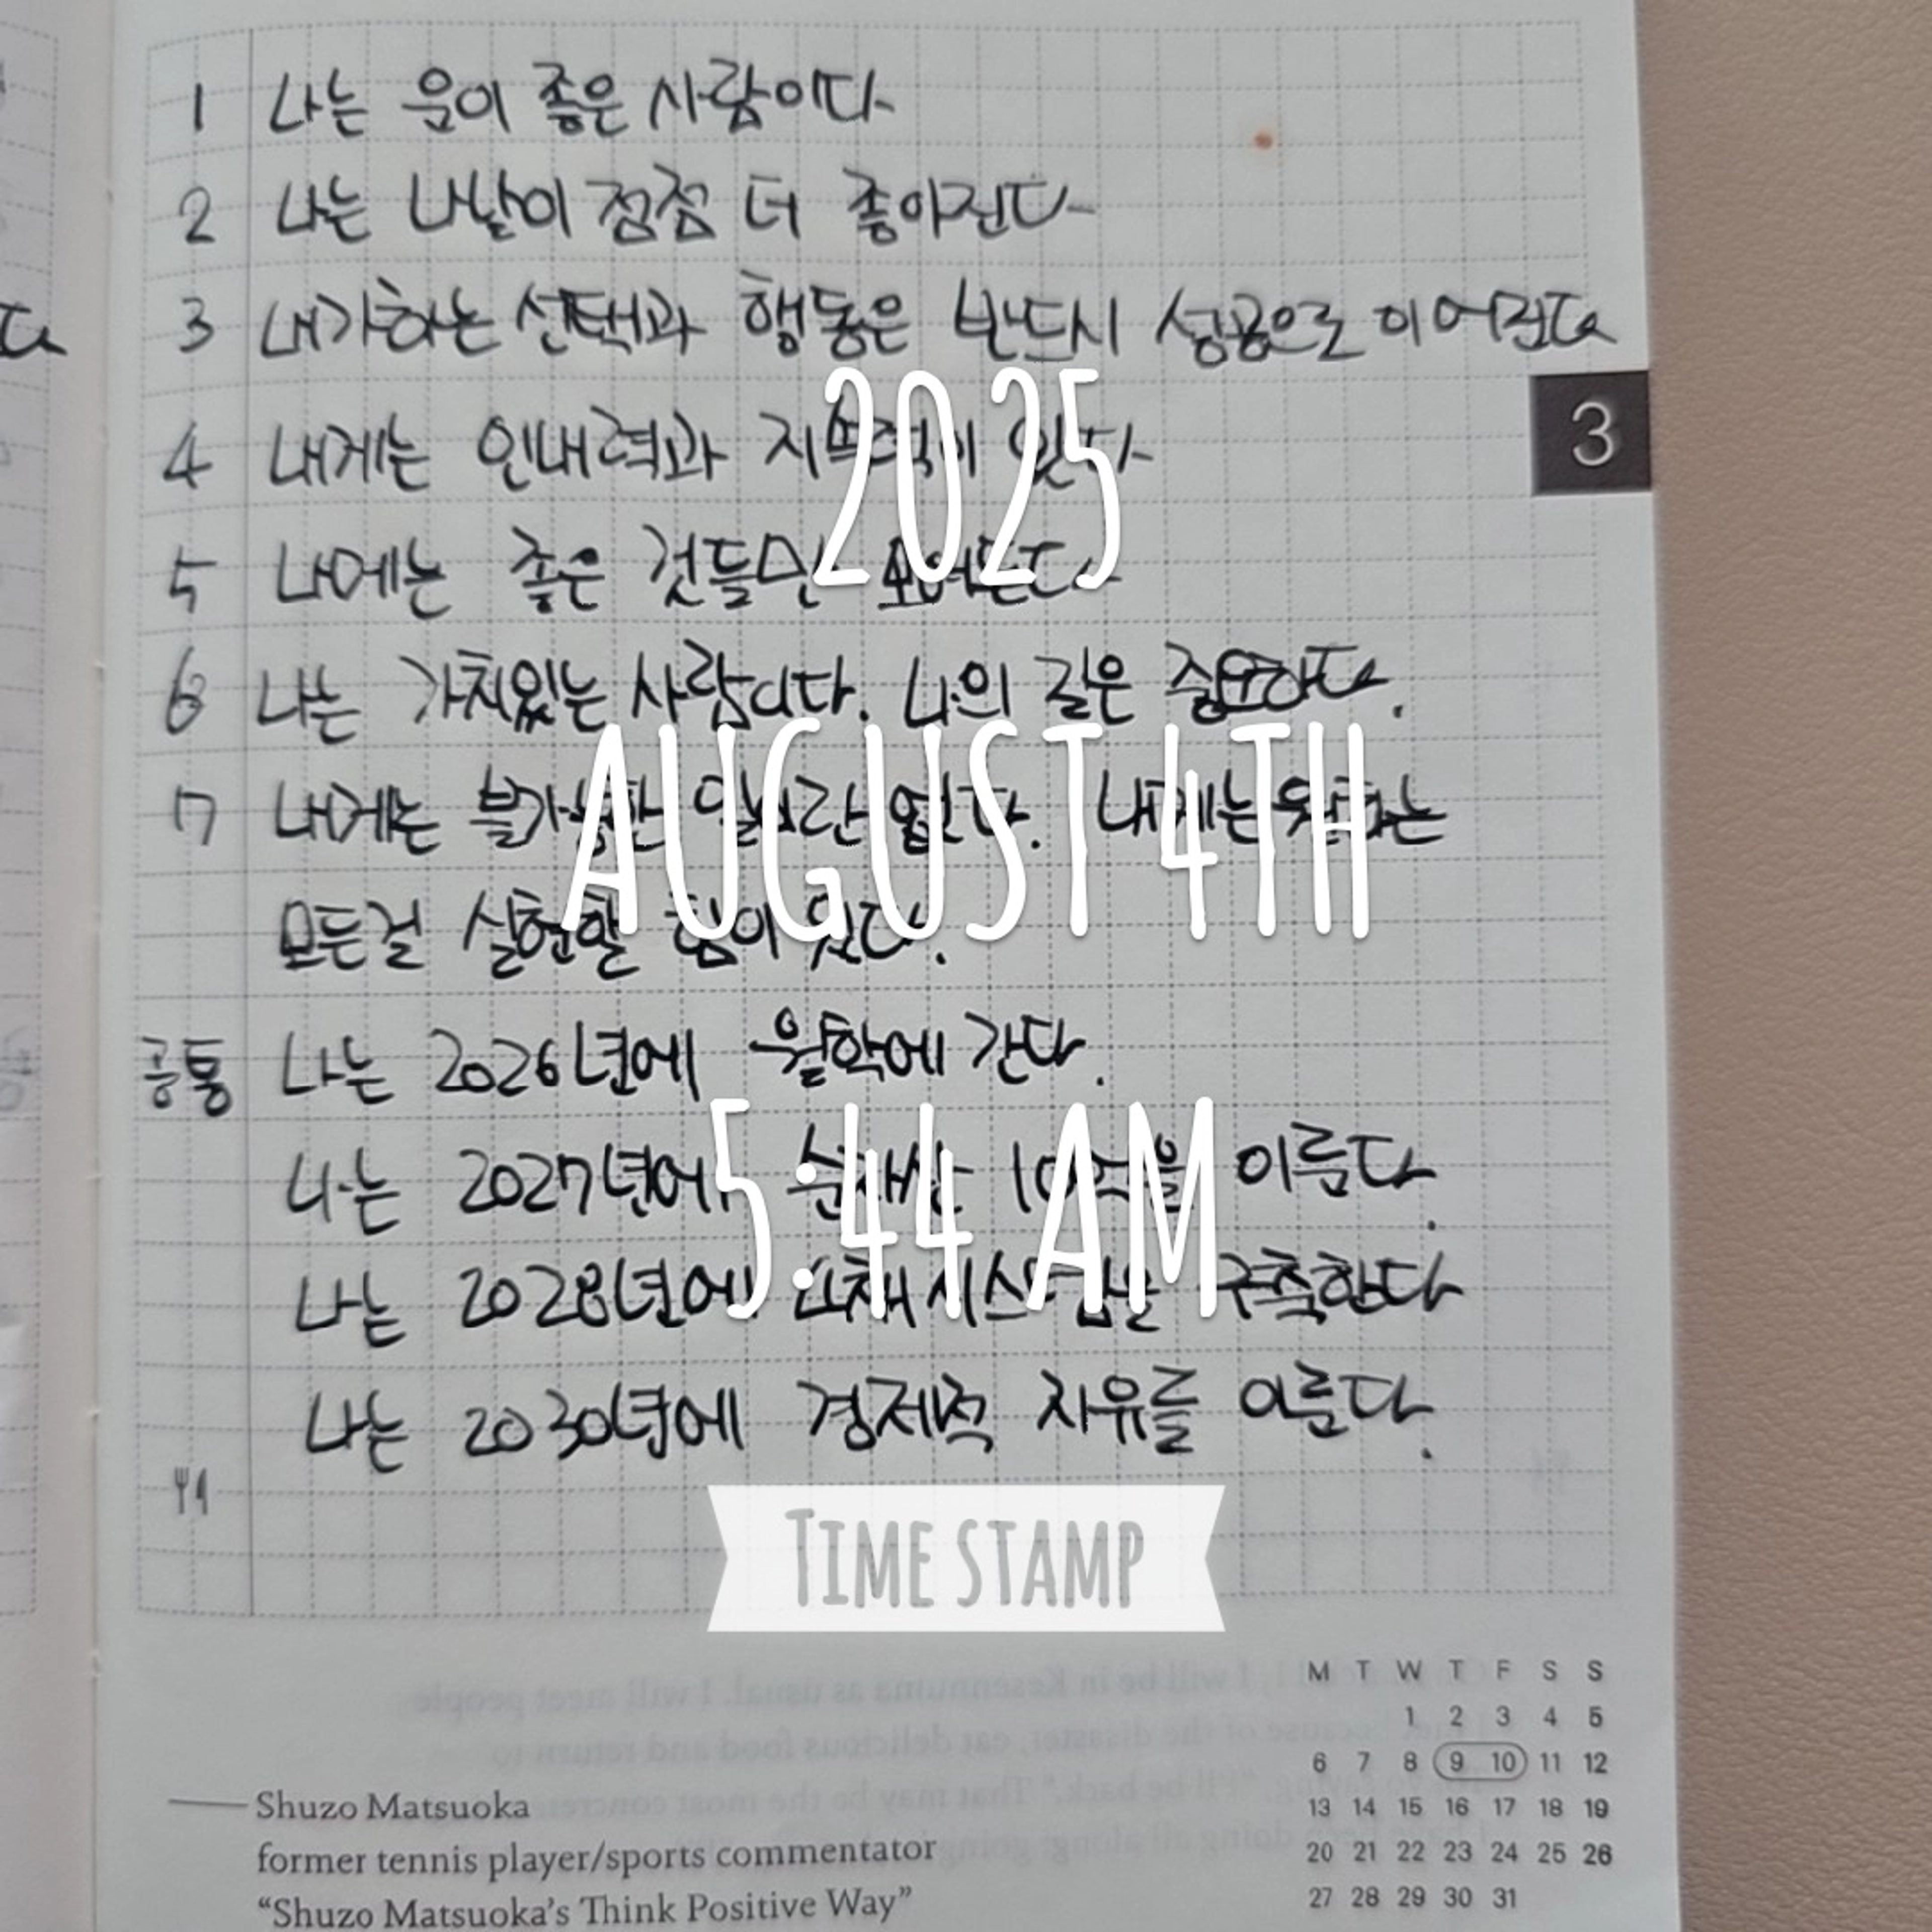 1 나는 운이 좋은 사람이다
2 나는 나날이 점점 더 좋아진다
3 내가하는 선택과 행동은 반드시 성공으로 이어진다
3
4 내게는 인내력과 지속력이 있다
2025
5 나에게는 좋은 것들만 모여든다
6 나는 가치있는 사람이다. 나의 길은 중요하다.
AUGUST 4TH
7 내게는 불가능한 일이란 없다. 내게는 원하는
모든걸 실현할 힘이 있다.
공통 나는 2026년에 월학에 간다.
5:44 AM
나는 2027년에 순자산 10억을 이룬다.
나는 2028년에 시스템을 구축한다
나는 2030년에 경제적 자유를 이룬다.
TIME STAMP
M T W T F S S
1 2 3 4 5
6 7 8 9 10 11 12
13 14 15 16 17 18 19
20 21 22 23 24 25 26
27 28 29 30 31
Shuzo Matsuoka
former tennis player/sports commentator
“Shuzo Matsuoka’s Think Positive Way”